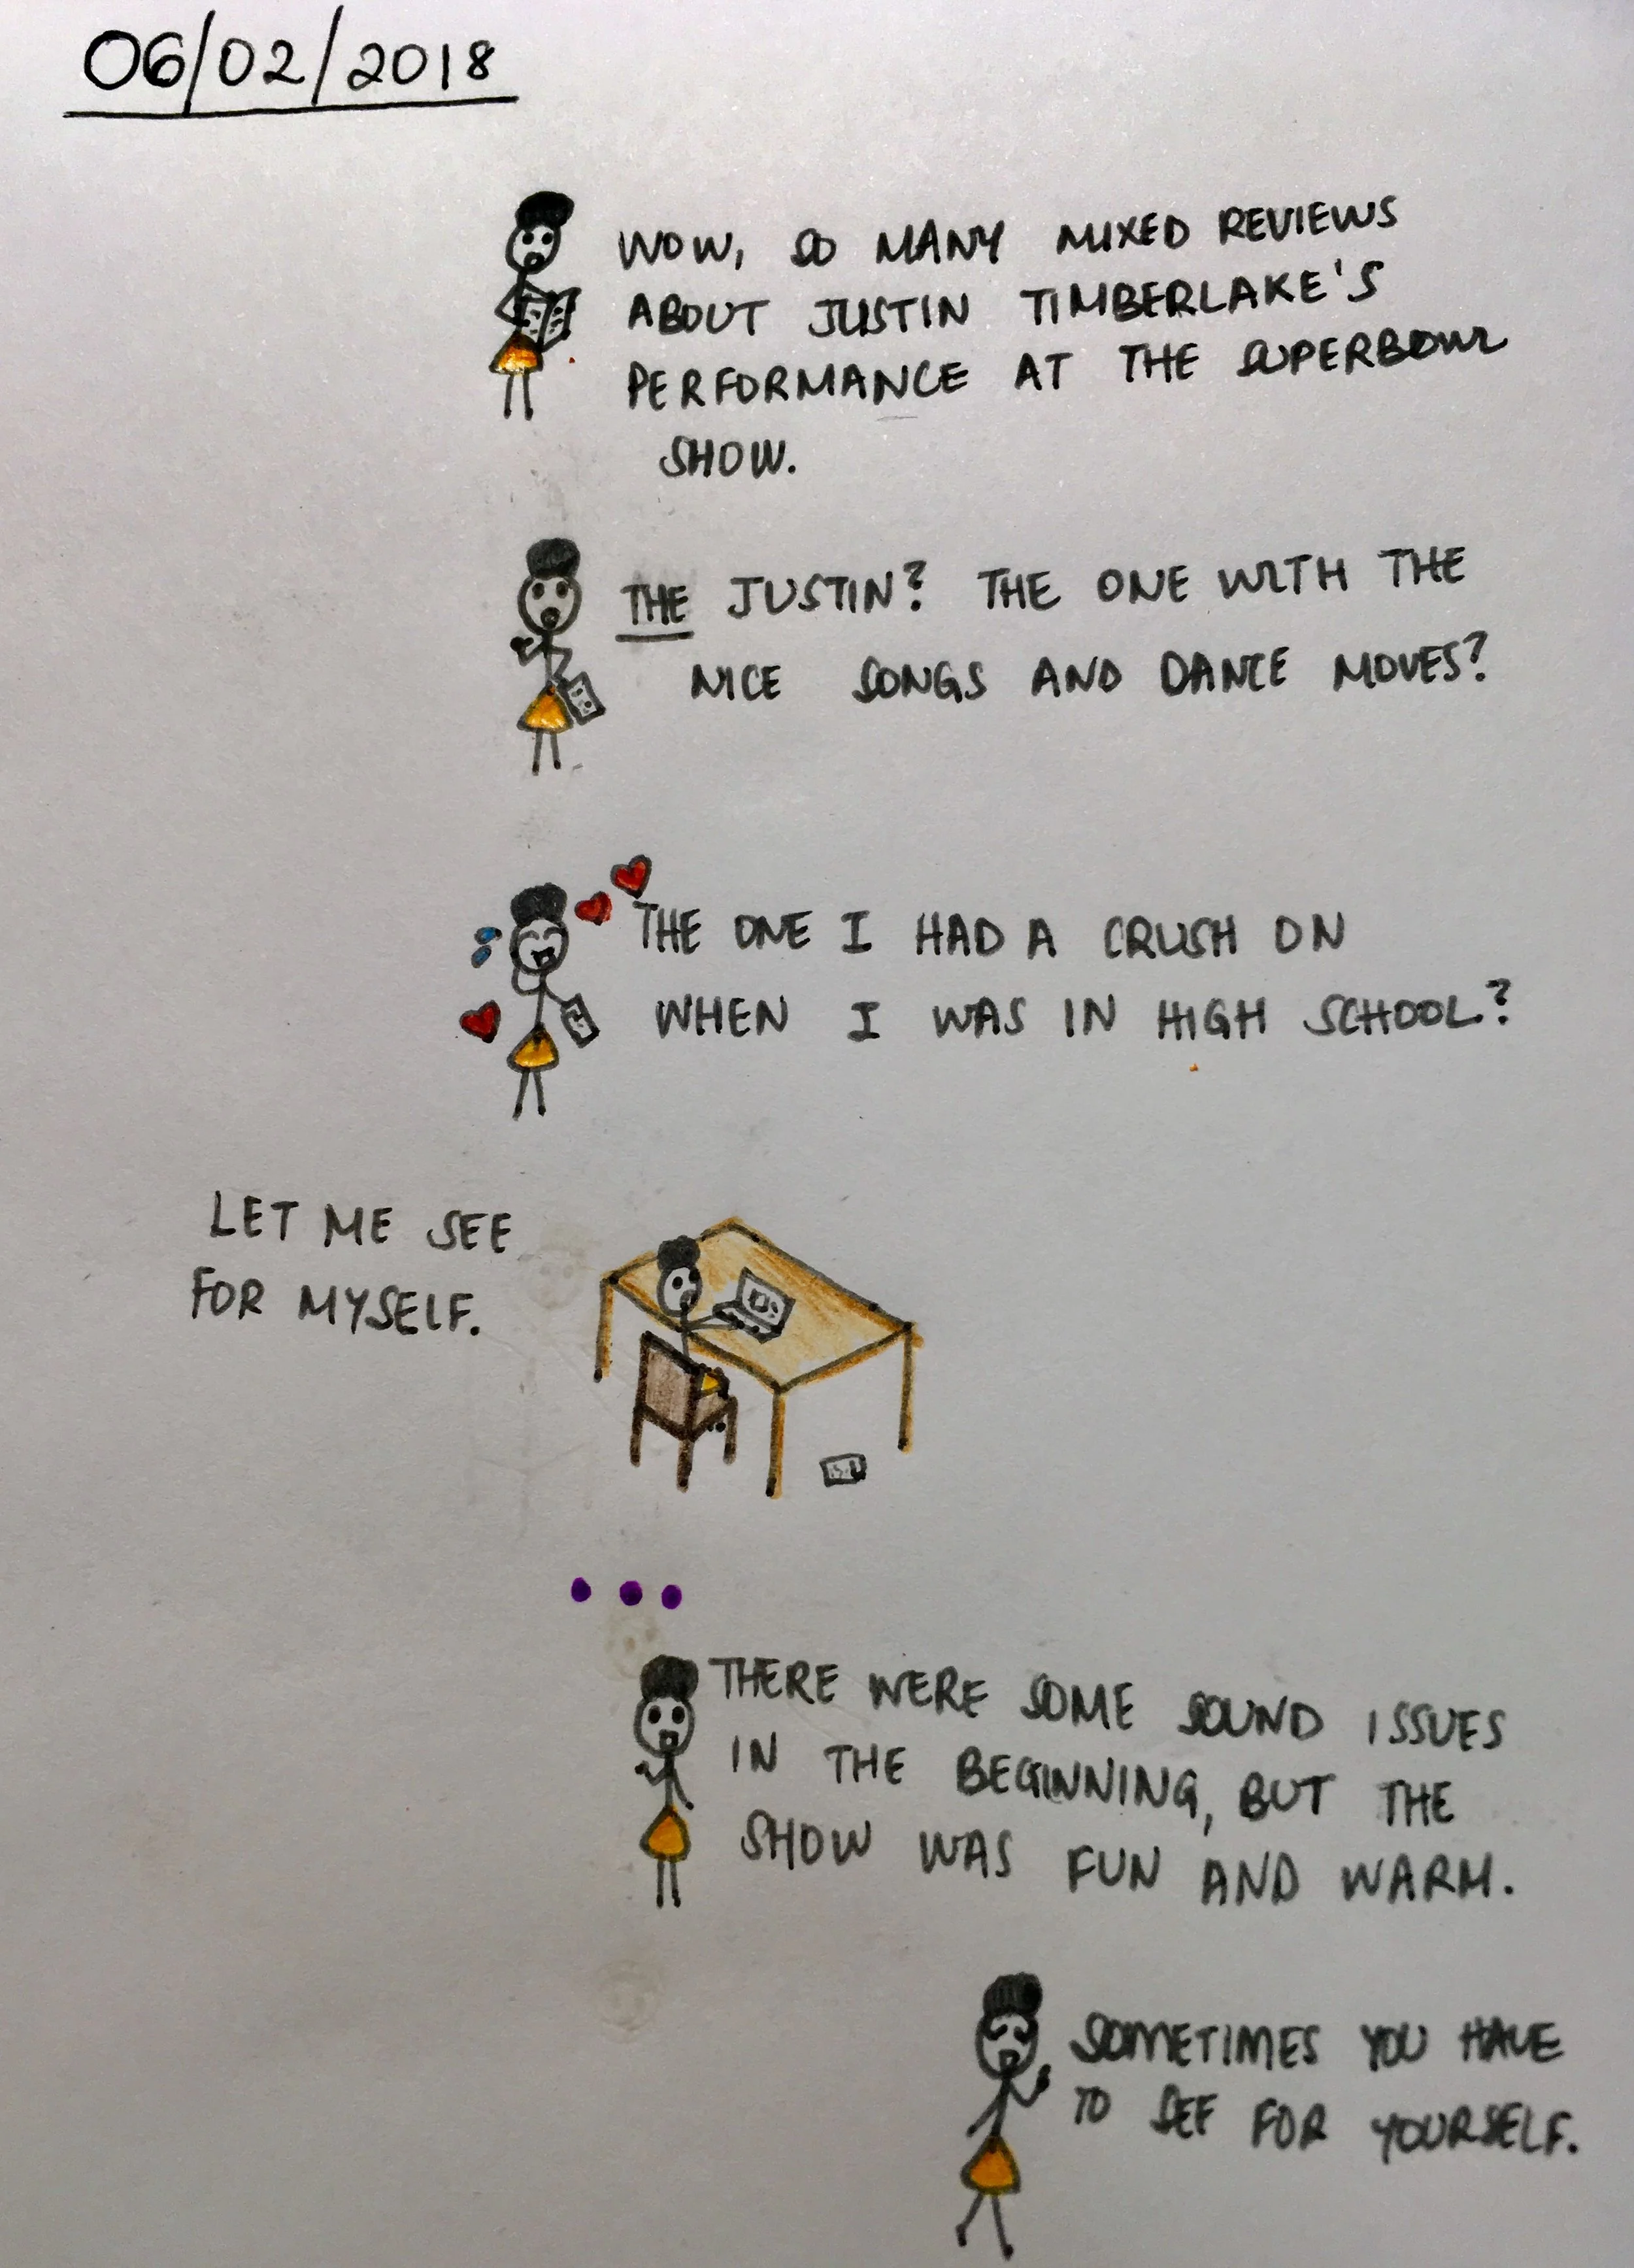 06/02/2018
WOW, SO MANY MIXED REVIEWS
ABOUT JUSTIN TIMBERLAKE'S
PERFORMANCE AT THE SUPERBOWL
SHOW.
THE JUSTIN? THE ONE WITH THE
NICE SONGS AND DANCE MOVES?
THE ONE I HAD A CRUSH ON
WHEN I WAS IN HIGH SCHOOL?
LET ME SEE
FOR MYSELF.
THERE WERE SOME SOUND ISSUES
IN THE BEGINNING, BUT THE
SHOW WAS FUN AND WARM.
SOMETIMES YOU HAVE
TO SEE FOR YOURSELF.